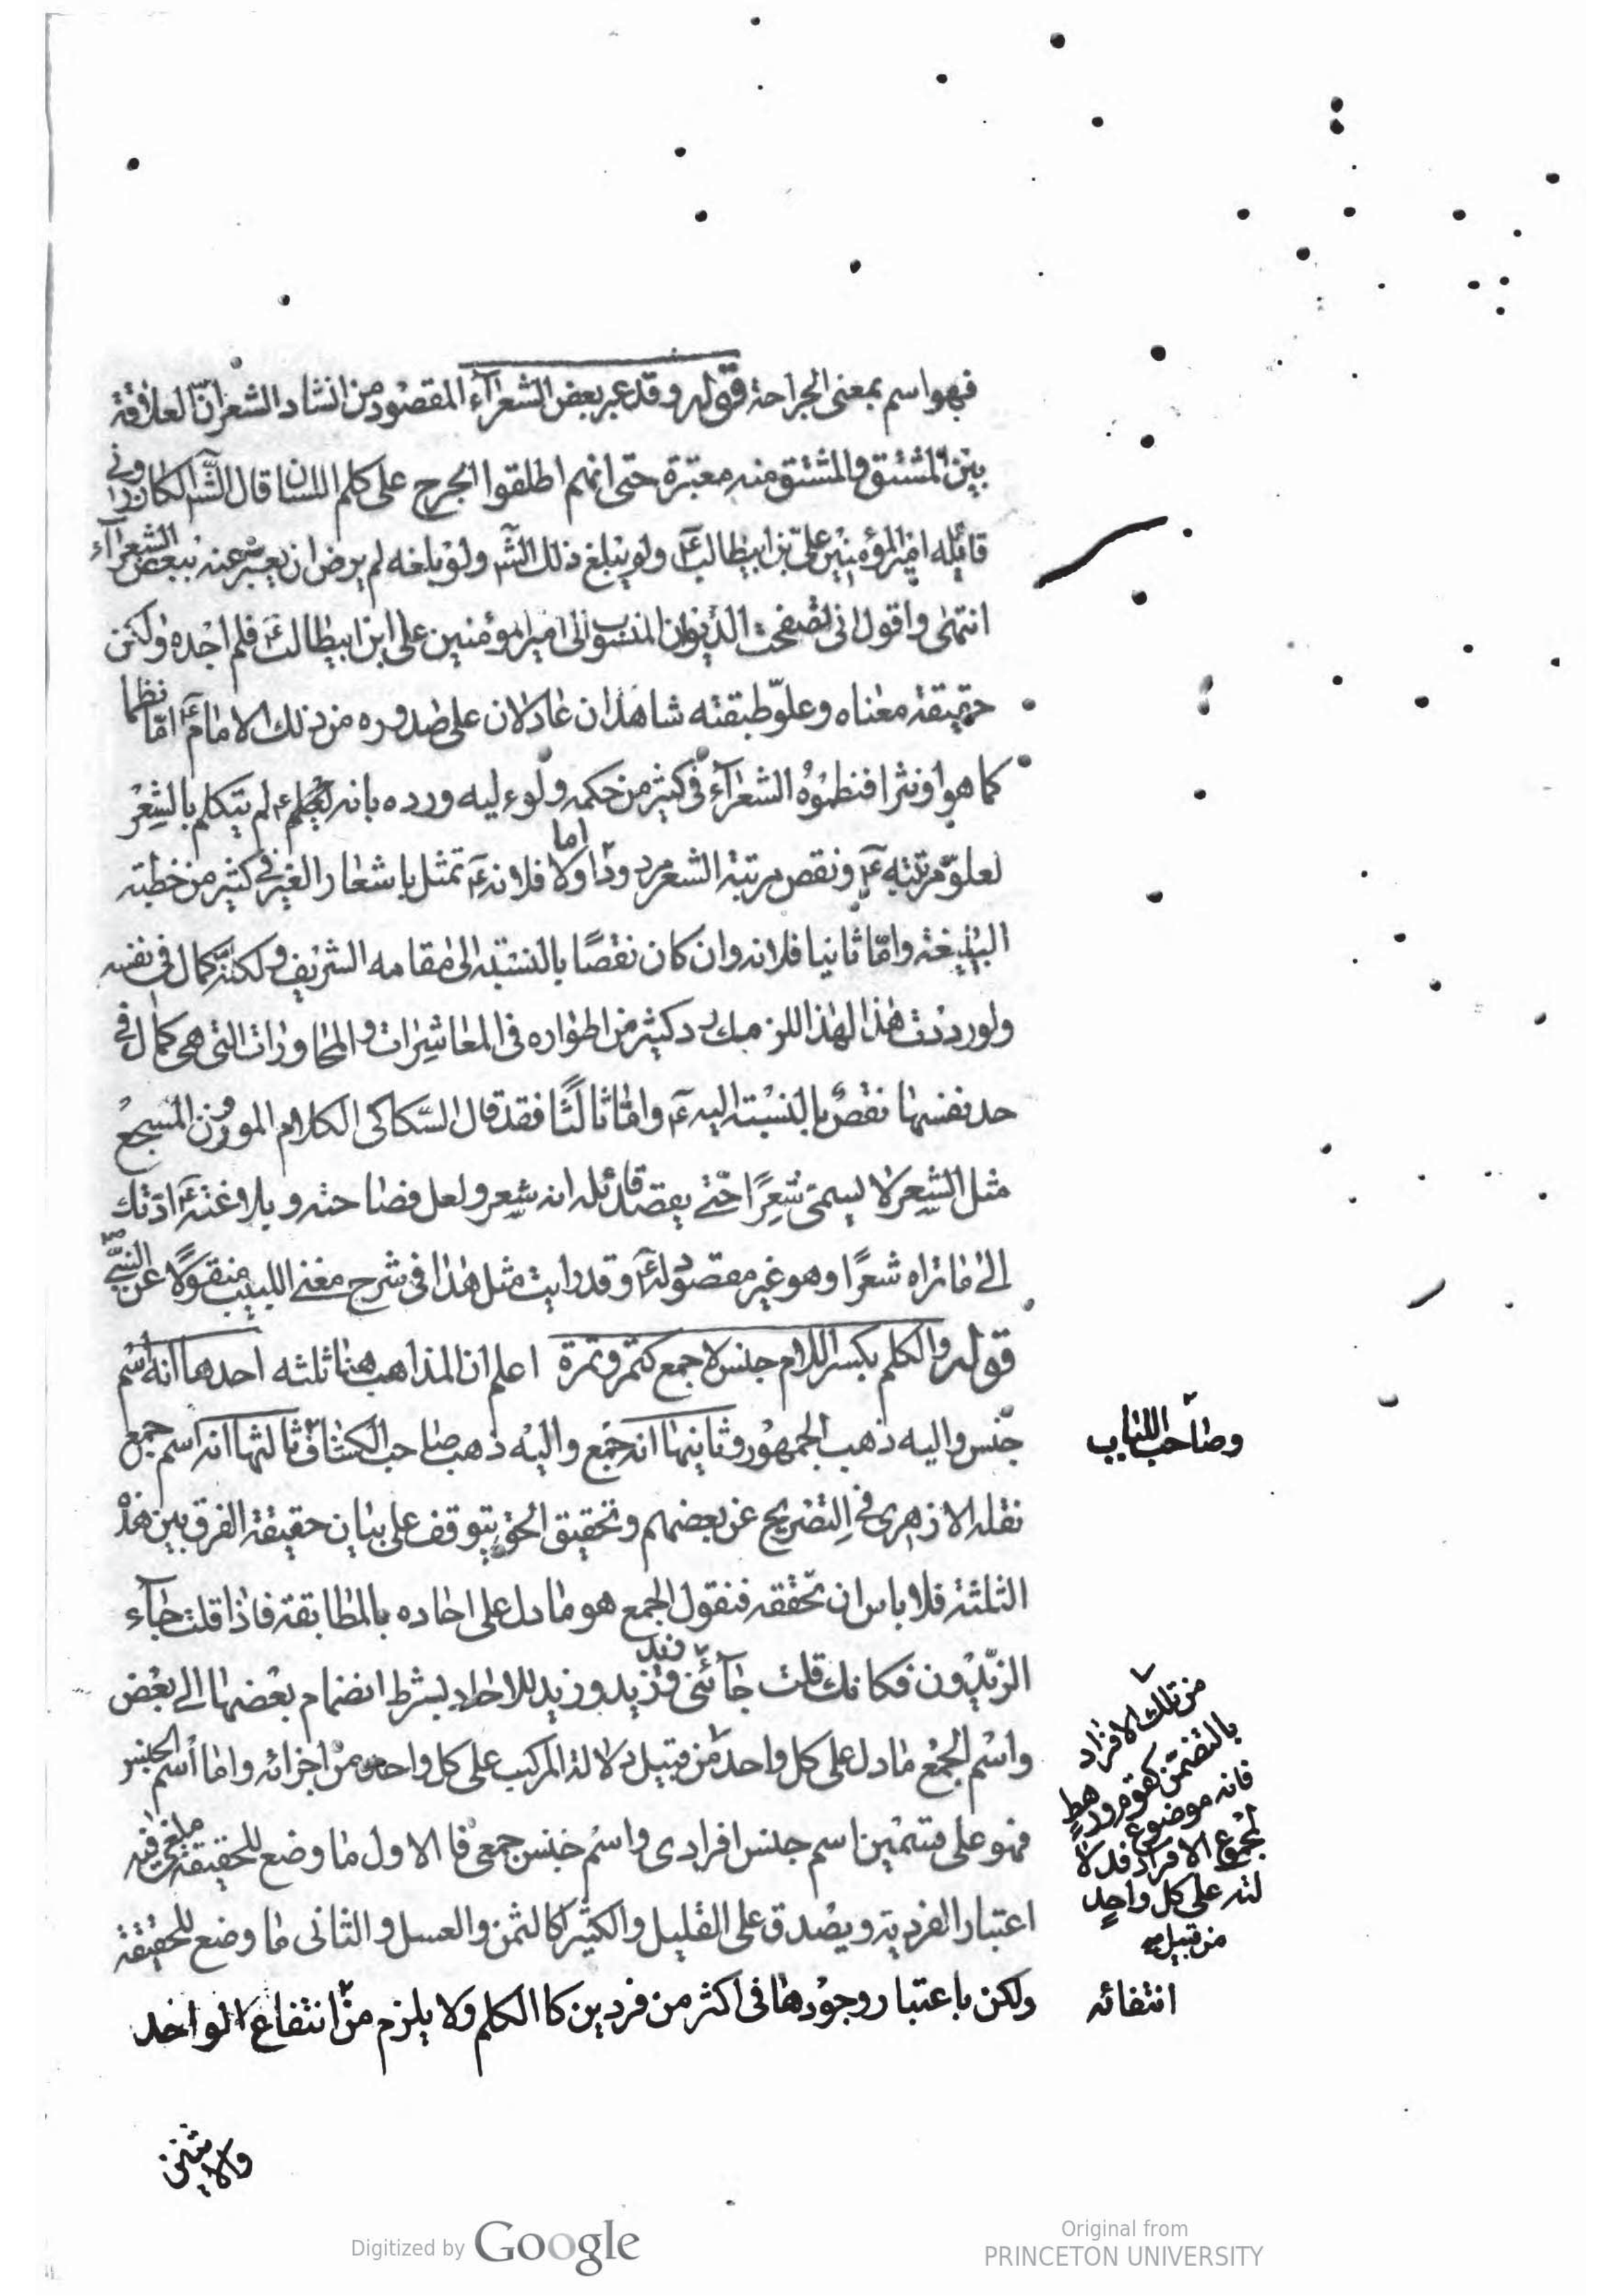 فهو اسم بمعنى الجراحة قوله وقد عبر بعض الشعرآء المقصود من انشاد الشعر انّ العلاقة
بين المشتق والمشتق منه معتبرة حتى انهم اطلقوا الجرح على كلم اللسان قال الشآ الكازرونى
قائله امير المؤمنين علىّ بن ابيطالب عۤ ولو يبلغ ذلك الشۤ ولو بلغه لم يرض ان يعبّر عنه ببعض الشعرآء
انتهى واقول انى تصفحت الديوان المنسوب الى امير المؤمنين على ابن ابيطالب عۤ فلم اجده ولكن
حقيقة معناه وعلوّ طبقته شاهدان عادلان على صدوره من ذلك الامام عۤ امّا نظما
كما هو او نثرا فنظموه الشعرآء فى كثير من حكمه ولوء ليه ورده بانه لم يتكلم بالشعر
لعلوّ مرتبته عۤ ونقص مرتبة الشعر مردود اما اولا فلانه عۤ تمثل باشعار الغير فى كثير من خطبته
البليغة وامّا ثانيا فلانه وان كان نقصًا بالنسبة الى مقامه الشريف ولكنّه كمال فى نفسه
ولو رددت هذا لهذا اللزمك رد كثير من اطواره فى المعاشرات والمحاورات التى هى كمال فى
حد نفسها نقص بالنسبة اليه عۤ وامّا ثالثًا فقد قال السّكاكى الكلام الموزون المسجع
مثل الشعر لا يسمى شعرًا حتّى يقصد قائله انه شعر ولعل فصاحته وبلاغته عۤ ادّتك
الى ما تراه شعرًا وهو غير مقصود له عۤ وقد رايت مثل هذا فى شرح مغنى اللبيب منقولًا عن النبىّ ص
قوله والكلم بكسر اللام جنس لا جمع كتمر وتمرة اعلم ان المذاهب هنا ثلثه احدها انه اسم
جنس واليه ذهب الجمهور وثانيها انه جمع واليه ذهب صاحب الكشاف وثالثها انه اسم جمع
وصاحب اللباب
نقله الازهرى فى التصريح عن بعضهم وتحقيق الحق يتوقف على بيان حقيقة الفرق بين هذه
الثلثة فلا باس ان نحققه فنقول الجمع هو ما دل على احاده بالمطابقة فاذا قلت جآء
الزيدون فكانك قلت جآئنى زيد وزيد وزيد للاحاد بشرط انضمام بعضها الى بعض
واسم الجمع ما دل على كل واحد من قبيل دلالة المركب على كل واحد من اجزائه واما اسم الجنس
من تلك الافراد
بالتضمّن كقوم ورهط
فانه موضوع
لمجموع الافراد فدلا
لته على كل واحد
من قبيل
فهو على قسمين اسم جنس افرادى واسم جنس جمعى فالاول ما وضع للحقيقة ملغى فيه
اعتبار الفردية ويصدق على القليل والكثير كالثمن والعسل والثانى ما وضع للحقيقة
ولكن باعتبار وجودها فى اكثر من فردين كا الكلم ولا يلزم من انتفاع الواحد
انتفائه
ولاثنين